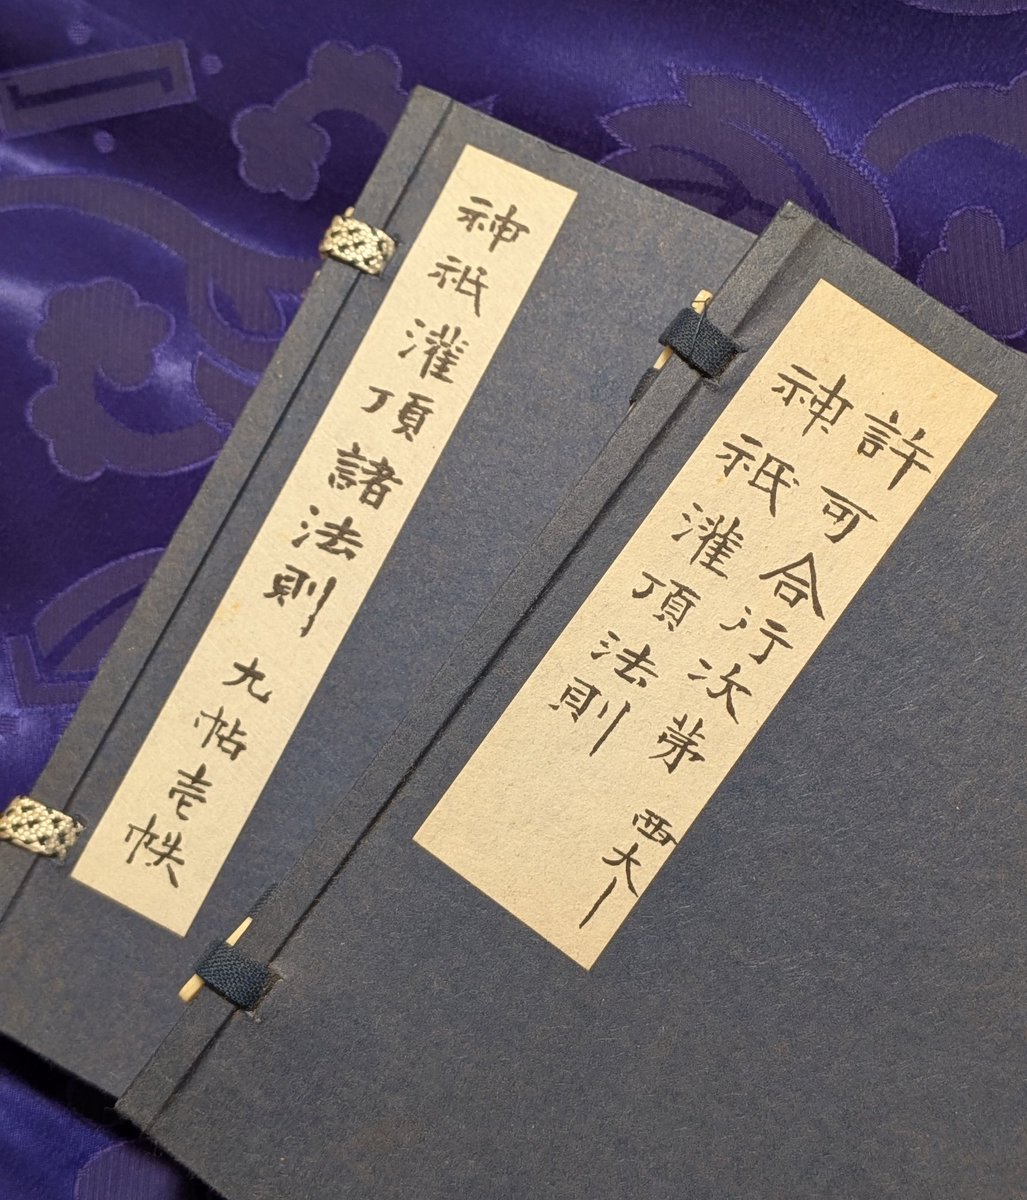 神祇灌頂諸法則 九帖壱帙
許可合行次㐧 西大〡
神祇灌頂法則